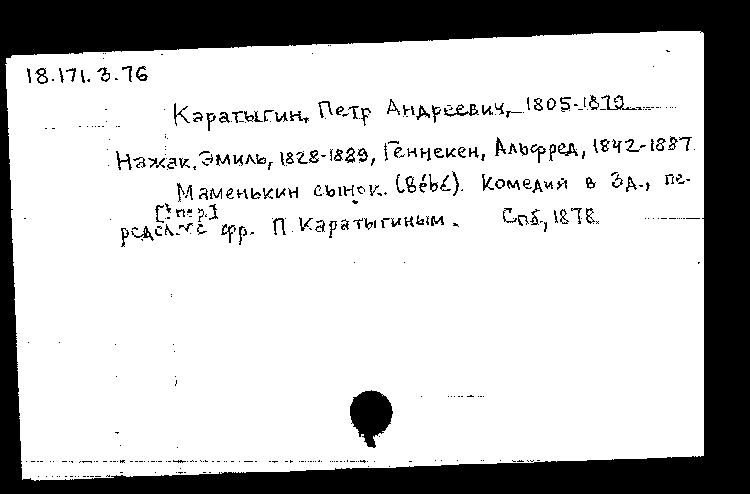 18.171.3.76
Каратыгин, Петр Андреевич, 1805-1879
Нажак, Эмиль, 1828-1889, Геннекен, Альфред, 1842-1887.
Маменькин сынок. (Bébé). Комедия в 3д., пе-
[: пер.]
редел. с фр. П. Каратыгиным. Спб., 1878.